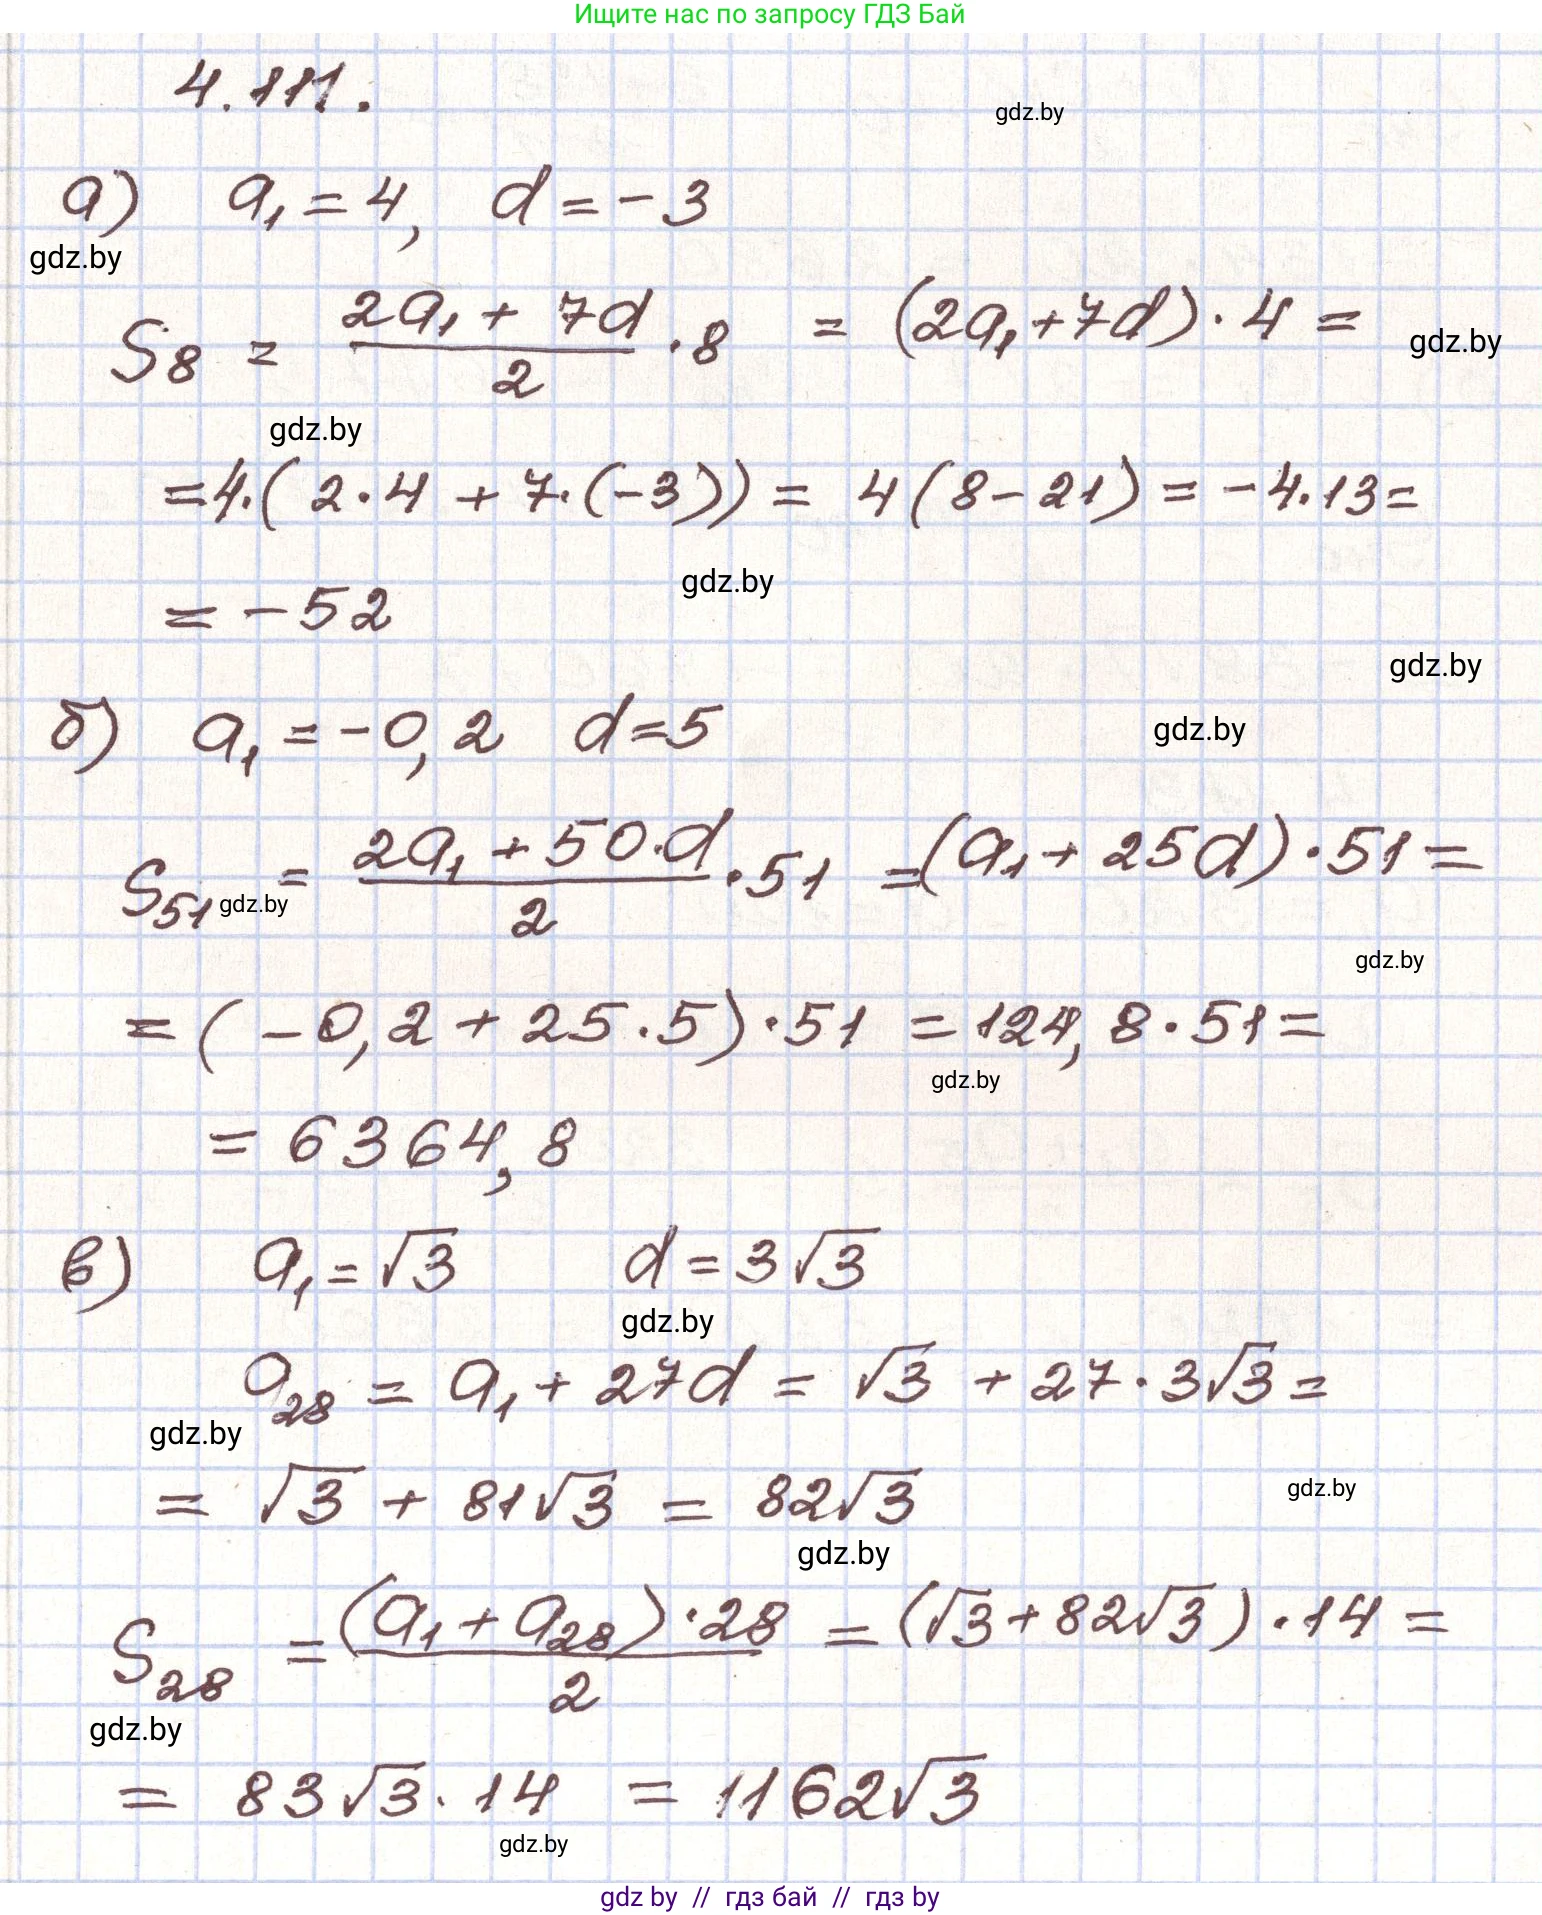 Ищите нас по запросу ГДЗ Бай
4.111.
gdz.by
а) a₁ = 4, d = -3
gdz.by
S₈ = (2a₁ + 7d)/2 · 8 = (2a₁ + 7d) · 4 =
gdz.by
gdz.by
= 4·(2·4 + 7·(-3)) = 4(8 - 21) = -4·13 =
gdz.by
= -52
gdz.by
б) a₁ = -0,2 d = 5
gdz.by
S₅₁ = (2a₁ + 50·d)/2 · 51 = (a₁ + 25d) · 51 =
gdz.by
gdz.by
= (-0,2 + 25·5) · 51 = 124,8 · 51 =
gdz.by
= 6364,8
в) a₁ = √3 d = 3√3
gdz.by
a₂₈ = a₁ + 27d = √3 + 27·3√3 =
gdz.by
= √3 + 81√3 = 82√3
gdz.by
gdz.by
S₂₈ = (a₁ + a₂₈)·28/2 = (√3 + 82√3) · 14 =
gdz.by
= 83√3 · 14 = 1162√3
gdz.by
gdz by // гдз бай // гдз by